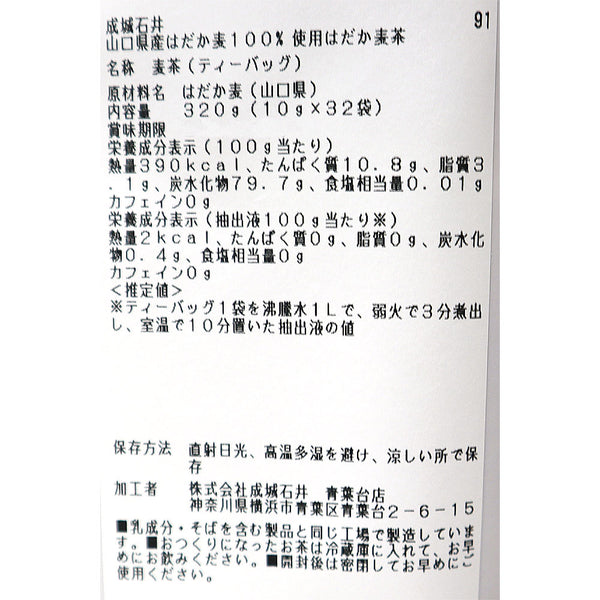 成城石井
91
山口県産はだか麦100%使用はだか麦茶
名称 麦茶(ティーバッグ)
原材料名 はだか麦(山口県)
内容量 320g(10g×32袋)
賞味期限
栄養成分表示(100g当たり)
熱量390kcal、たんぱく質10.8g、脂質3
.1g、炭水化物79.7g、食塩相当量0.01g
カフェイン0g
栄養成分表示(抽出液100g当たり※)
熱量2kcal、たんぱく質0g、脂質0g、炭水化
物0.4g、食塩相当量0g
カフェイン0g
<推定値>
※ティーバッグ1袋を沸騰水1Lで、弱火で3分煮出
し、室温で10分置いた抽出液の値
保存方法 直射日光、高温多湿を避け、涼しい所で保
存
加工者 株式会社成城石井 青葉台店
神奈川県横浜市青葉区青葉台2-6-15
■乳成分・そばを含む製品と同じ工場で製造していま
す。■おつくりになったお茶は冷蔵庫に入れて、お早
めにお飲みください。■開封後は密閉してお早めにご
使用ください。